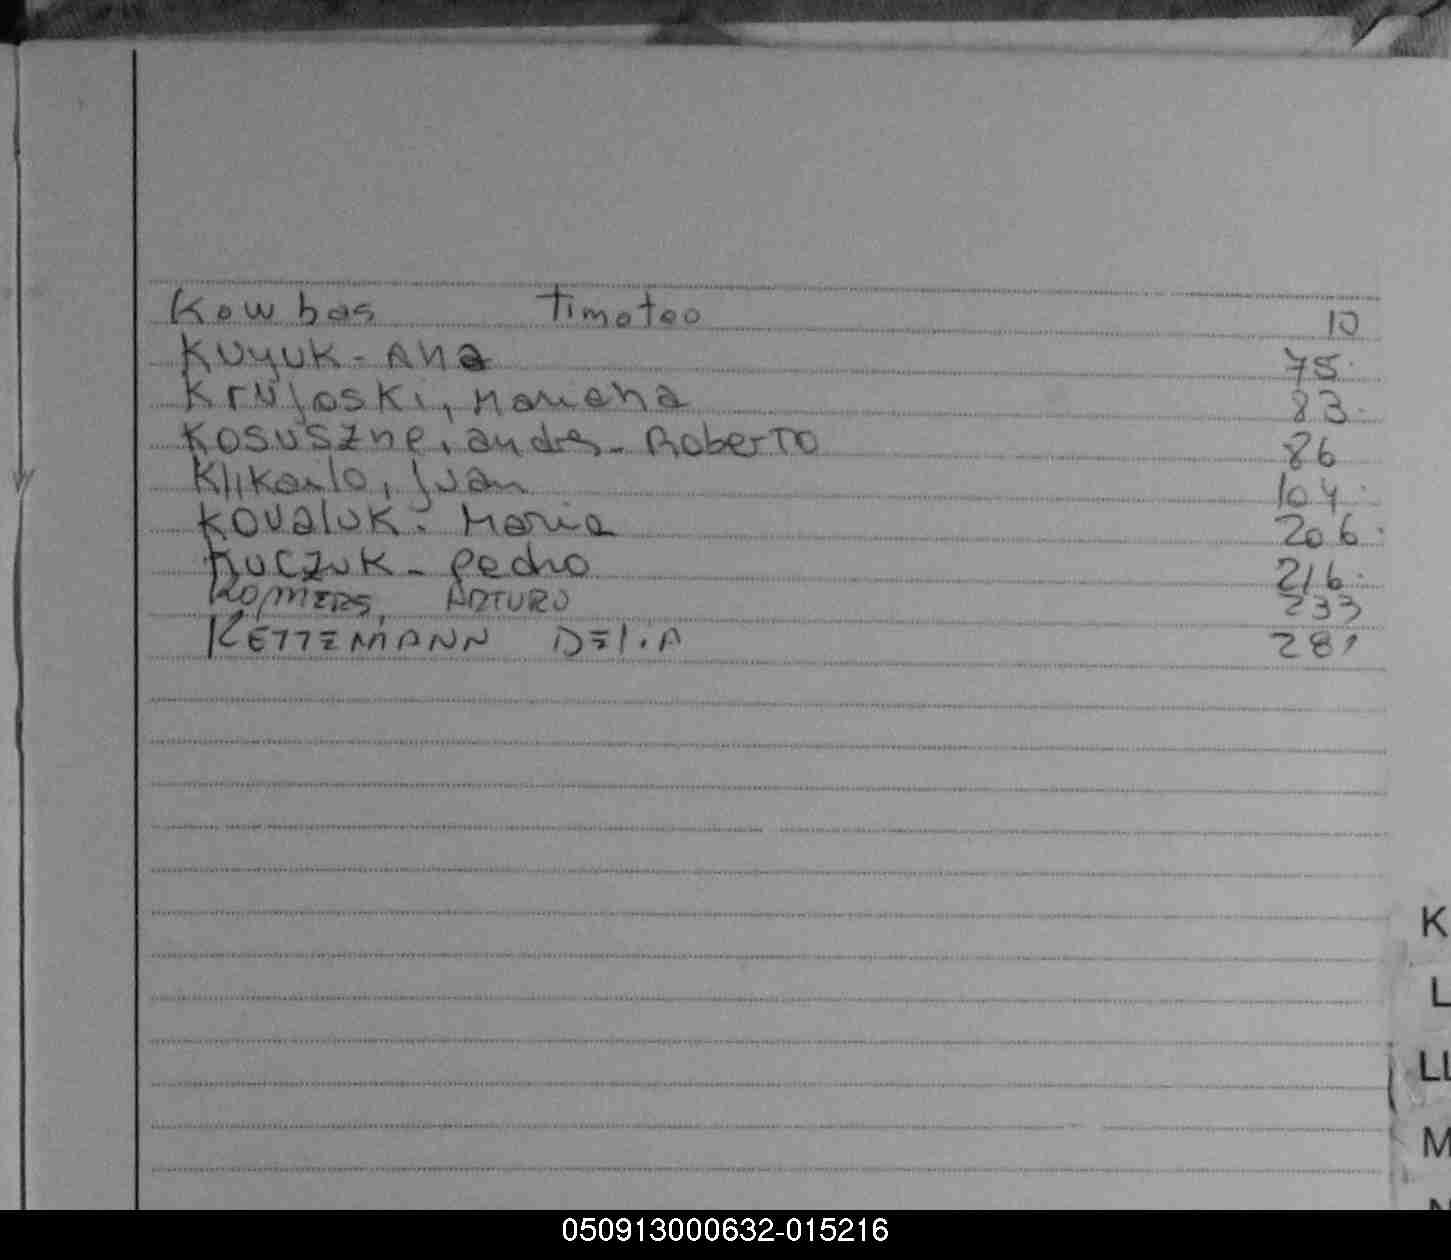 Kowbas Timoteo 10
KUYUK - Ana 75.
Krujoski, Mariana 83.
Kosuszne, andrs - Roberto 86
Klikailo, Juan 104.
Kovaluk. Maria 206.
Kuczuk - Pedro 216.
ARTURO 233
KETTEMANN DELIA 281
K
L
LL
M
050913000632-015216